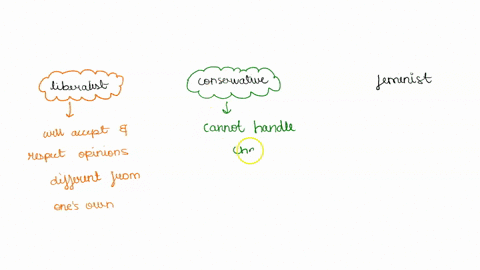 liberalist
conservative
feminist
will accept &
respect opinions
different from
one's own
cannot handle
chn